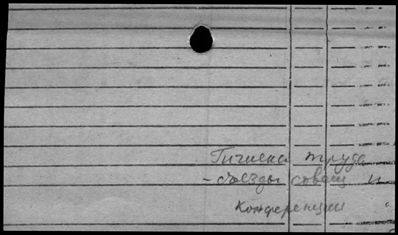 Гигиена труда
- съезды совещ и
конференции